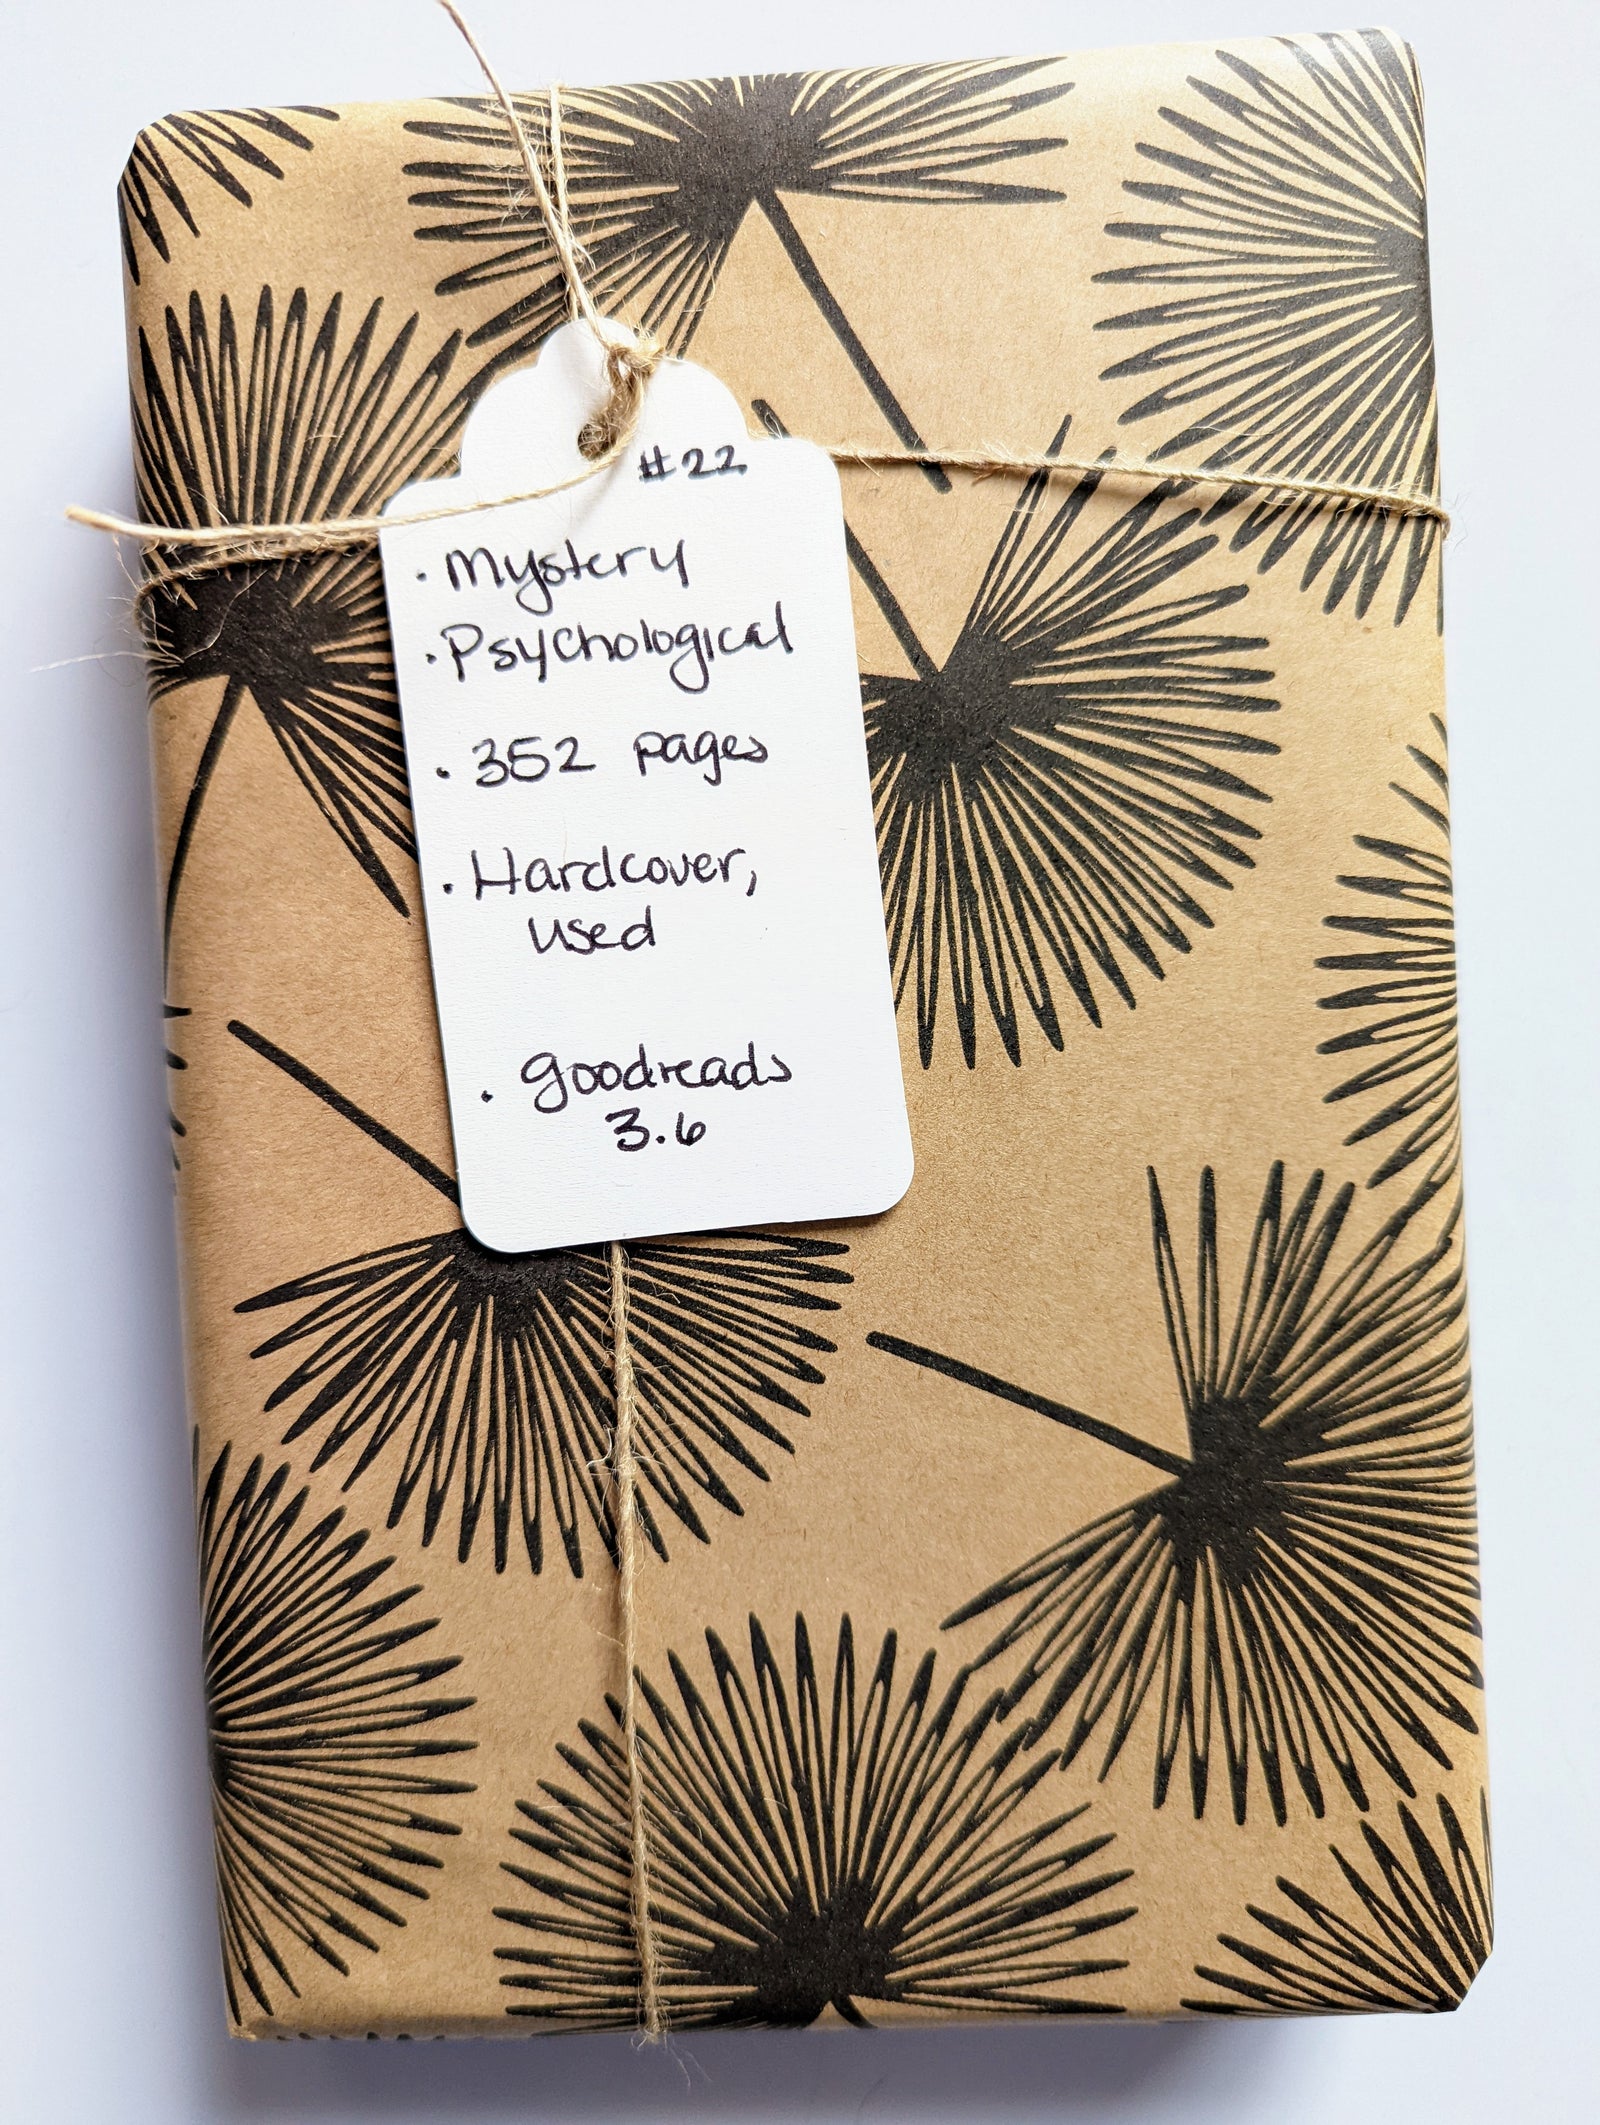 #22
· Mystery
· Psychological
· 352 pages
· Hardcover,
used
· goodreads
3.6